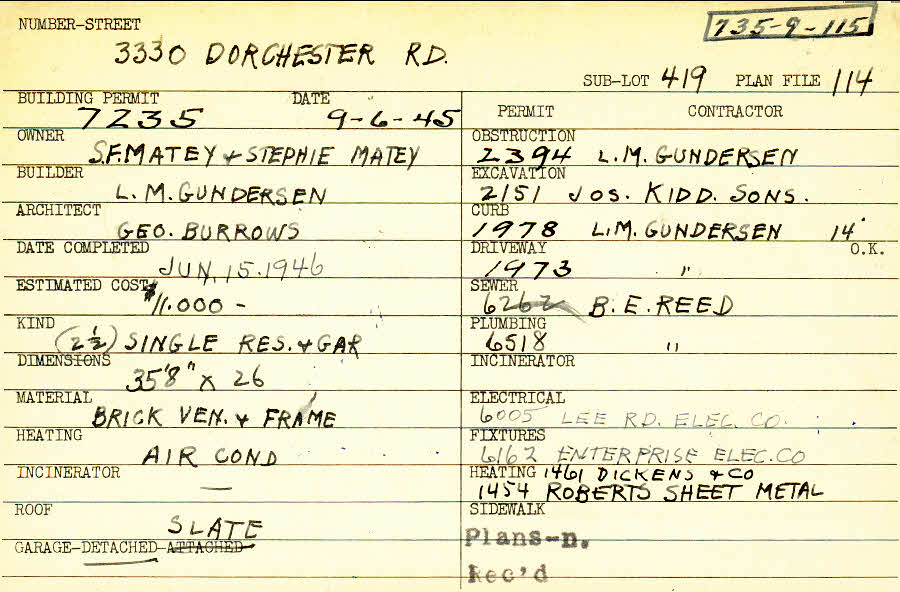 NUMBER-STREET
735-9-115
3330 DORCHESTER RD.
SUB-LOT 419 PLAN FILE 114
BUILDING PERMIT DATE
7235 9-6-45
OWNER
S.F.MATEY & STEPHIE MATEY
BUILDER
L.M.GUNDERSEN
ARCHITECT
GEO. BURROWS
DATE COMPLETED
JUN.15.1946
ESTIMATED COST
$11.000 -
KIND
(2½) SINGLE RES. & GAR
DIMENSIONS
35'8" X 26
MATERIAL
BRICK VEN. & FRAME
HEATING
AIR COND
INCINERATOR
—
ROOF
SLATE
GARAGE-DETACHED-ATTACHED
PERMIT CONTRACTOR
OBSTRUCTION
2394 L.M. GUNDERSEN
EXCAVATION
2151 JOS. KIDD. SONS.
CURB
1978 L.M. GUNDERSEN 14'
DRIVEWAY O.K.
1973 "
SEWER
6262 B.E.REED
PLUMBING
6518 "
INCINERATOR
ELECTRICAL
6005 LEE RD. ELEC. CO.
FIXTURES
6162 ENTERPRISE ELEC.CO
HEATING 1461 DICKENS & CO
1454 ROBERTS SHEET METAL
SIDEWALK
Plans-n.
Rec'd